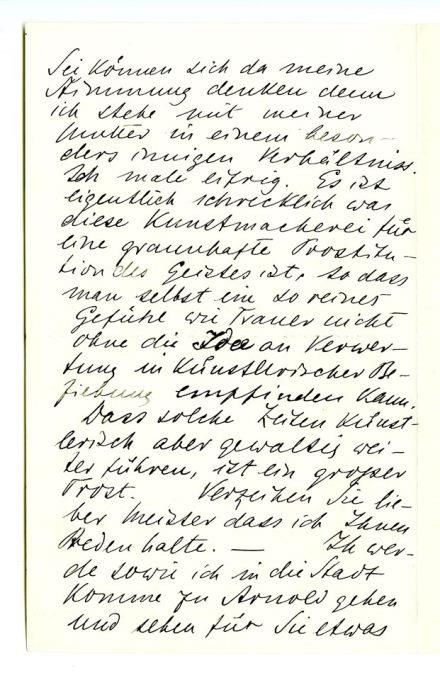 Sie können sich da meine
Stimmung denken denn
ich stehe mit meiner
Mutter in einem beson-
ders innigen Verhältniss.
Ich male eifrig. Es ist
eigentlich schrecklich was
diese Kunstmacherei für
eine grauenhafte Prostitu-
tion des Geistes ist, so dass
man selbst ein so reines
Gefühl wie Trauer nicht
ohne die Idee an Verwer-
tung in künstlerischer Be-
ziehung empfinden kann.
Dass solche Zeiten künst-
lerisch aber gewaltig wei-
ter führen, ist ein grosser
Trost. Verzeihen Sie lie-
ber Meister dass ich Ihnen
Reden halte. — Ich wer-
de sowie ich in die Stadt
komme zu Arnold gehen
und sehen für Sie etwas